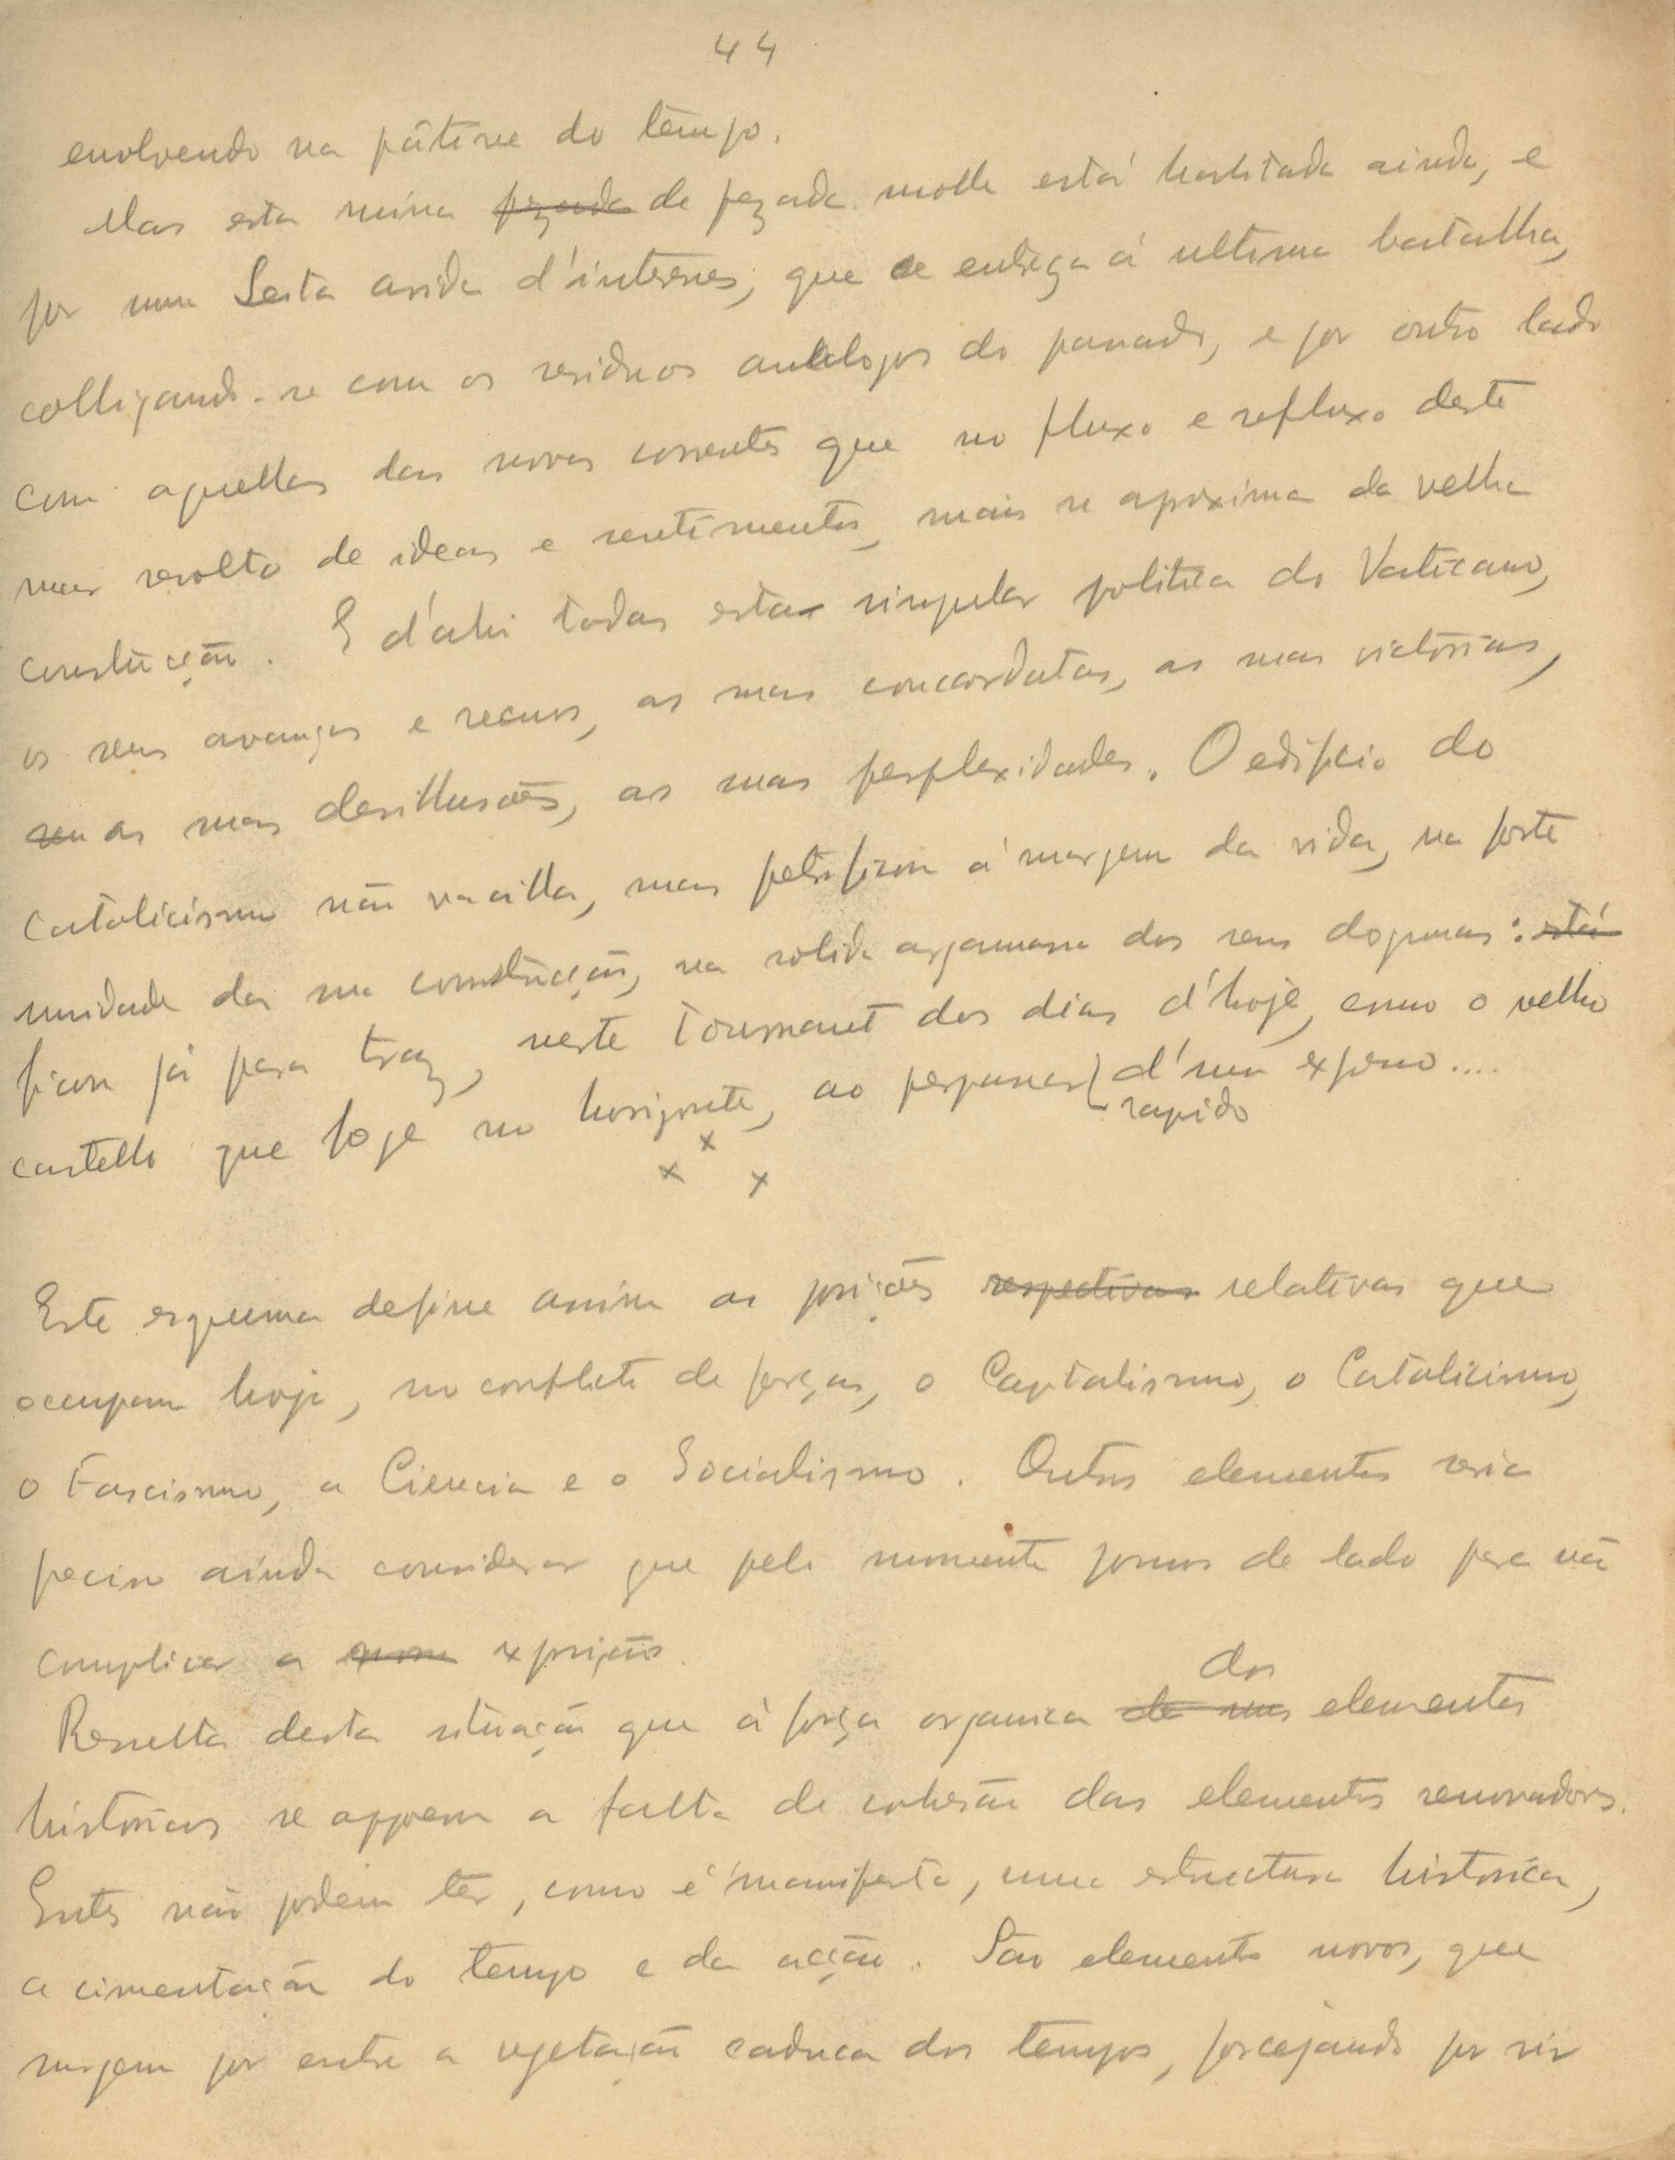 44
envolvendo na pátine do tempo.
Mas esta ruina pezada de pezada molle está habitada ainda, e
por uma Seita avida d'interesses, que se entrega á ultima batalha,
colligando-se com os residuos analogos do passado, e por outro lado
com aquellas das novas correntes que no fluxo e refluxo deste
mar revolto de ideas e sentimentos, mais se aproxima da velha
construcção. E d'ahi todas esta singular politica do Vaticano,
os seus avanços e recuos, as suas concordatas, as suas victorias,
seu as suas desillusões, as suas perplexidades. O edificio do
Catolicismo não vacilla, mas petrificou á margem da vida, na forte
unidade da sua construcção, na solida argamassa dos seus dogmas: está
ficou já para traz, neste tournant dos dias d'hoje, como o velho
castello que foge no horizonte, ao perpassar d'um expresso....
rapido
x x x
Este esquema define assim as posições respectivas relativas que
occupam hoje, no conflicto de forças, o Capitalismo, o Catolicismo,
o Fascismo, a Ciencia e o Socialismo. Outros elementos seria
preciso ainda considerar que pelo momento pomos de lado para não
complicar a exposição.
dos
Resulta desta situação que á força organica de seus elementos
historicos se appoem a falta de cohesão dos elementos renovadores.
Estes não podem ter, como é manifesto, uma estructura historica,
a cimentação do tempo e da acção. São elementos novos, que
surgem por entre a vegetação caduca dos tempos, forcejando por vir